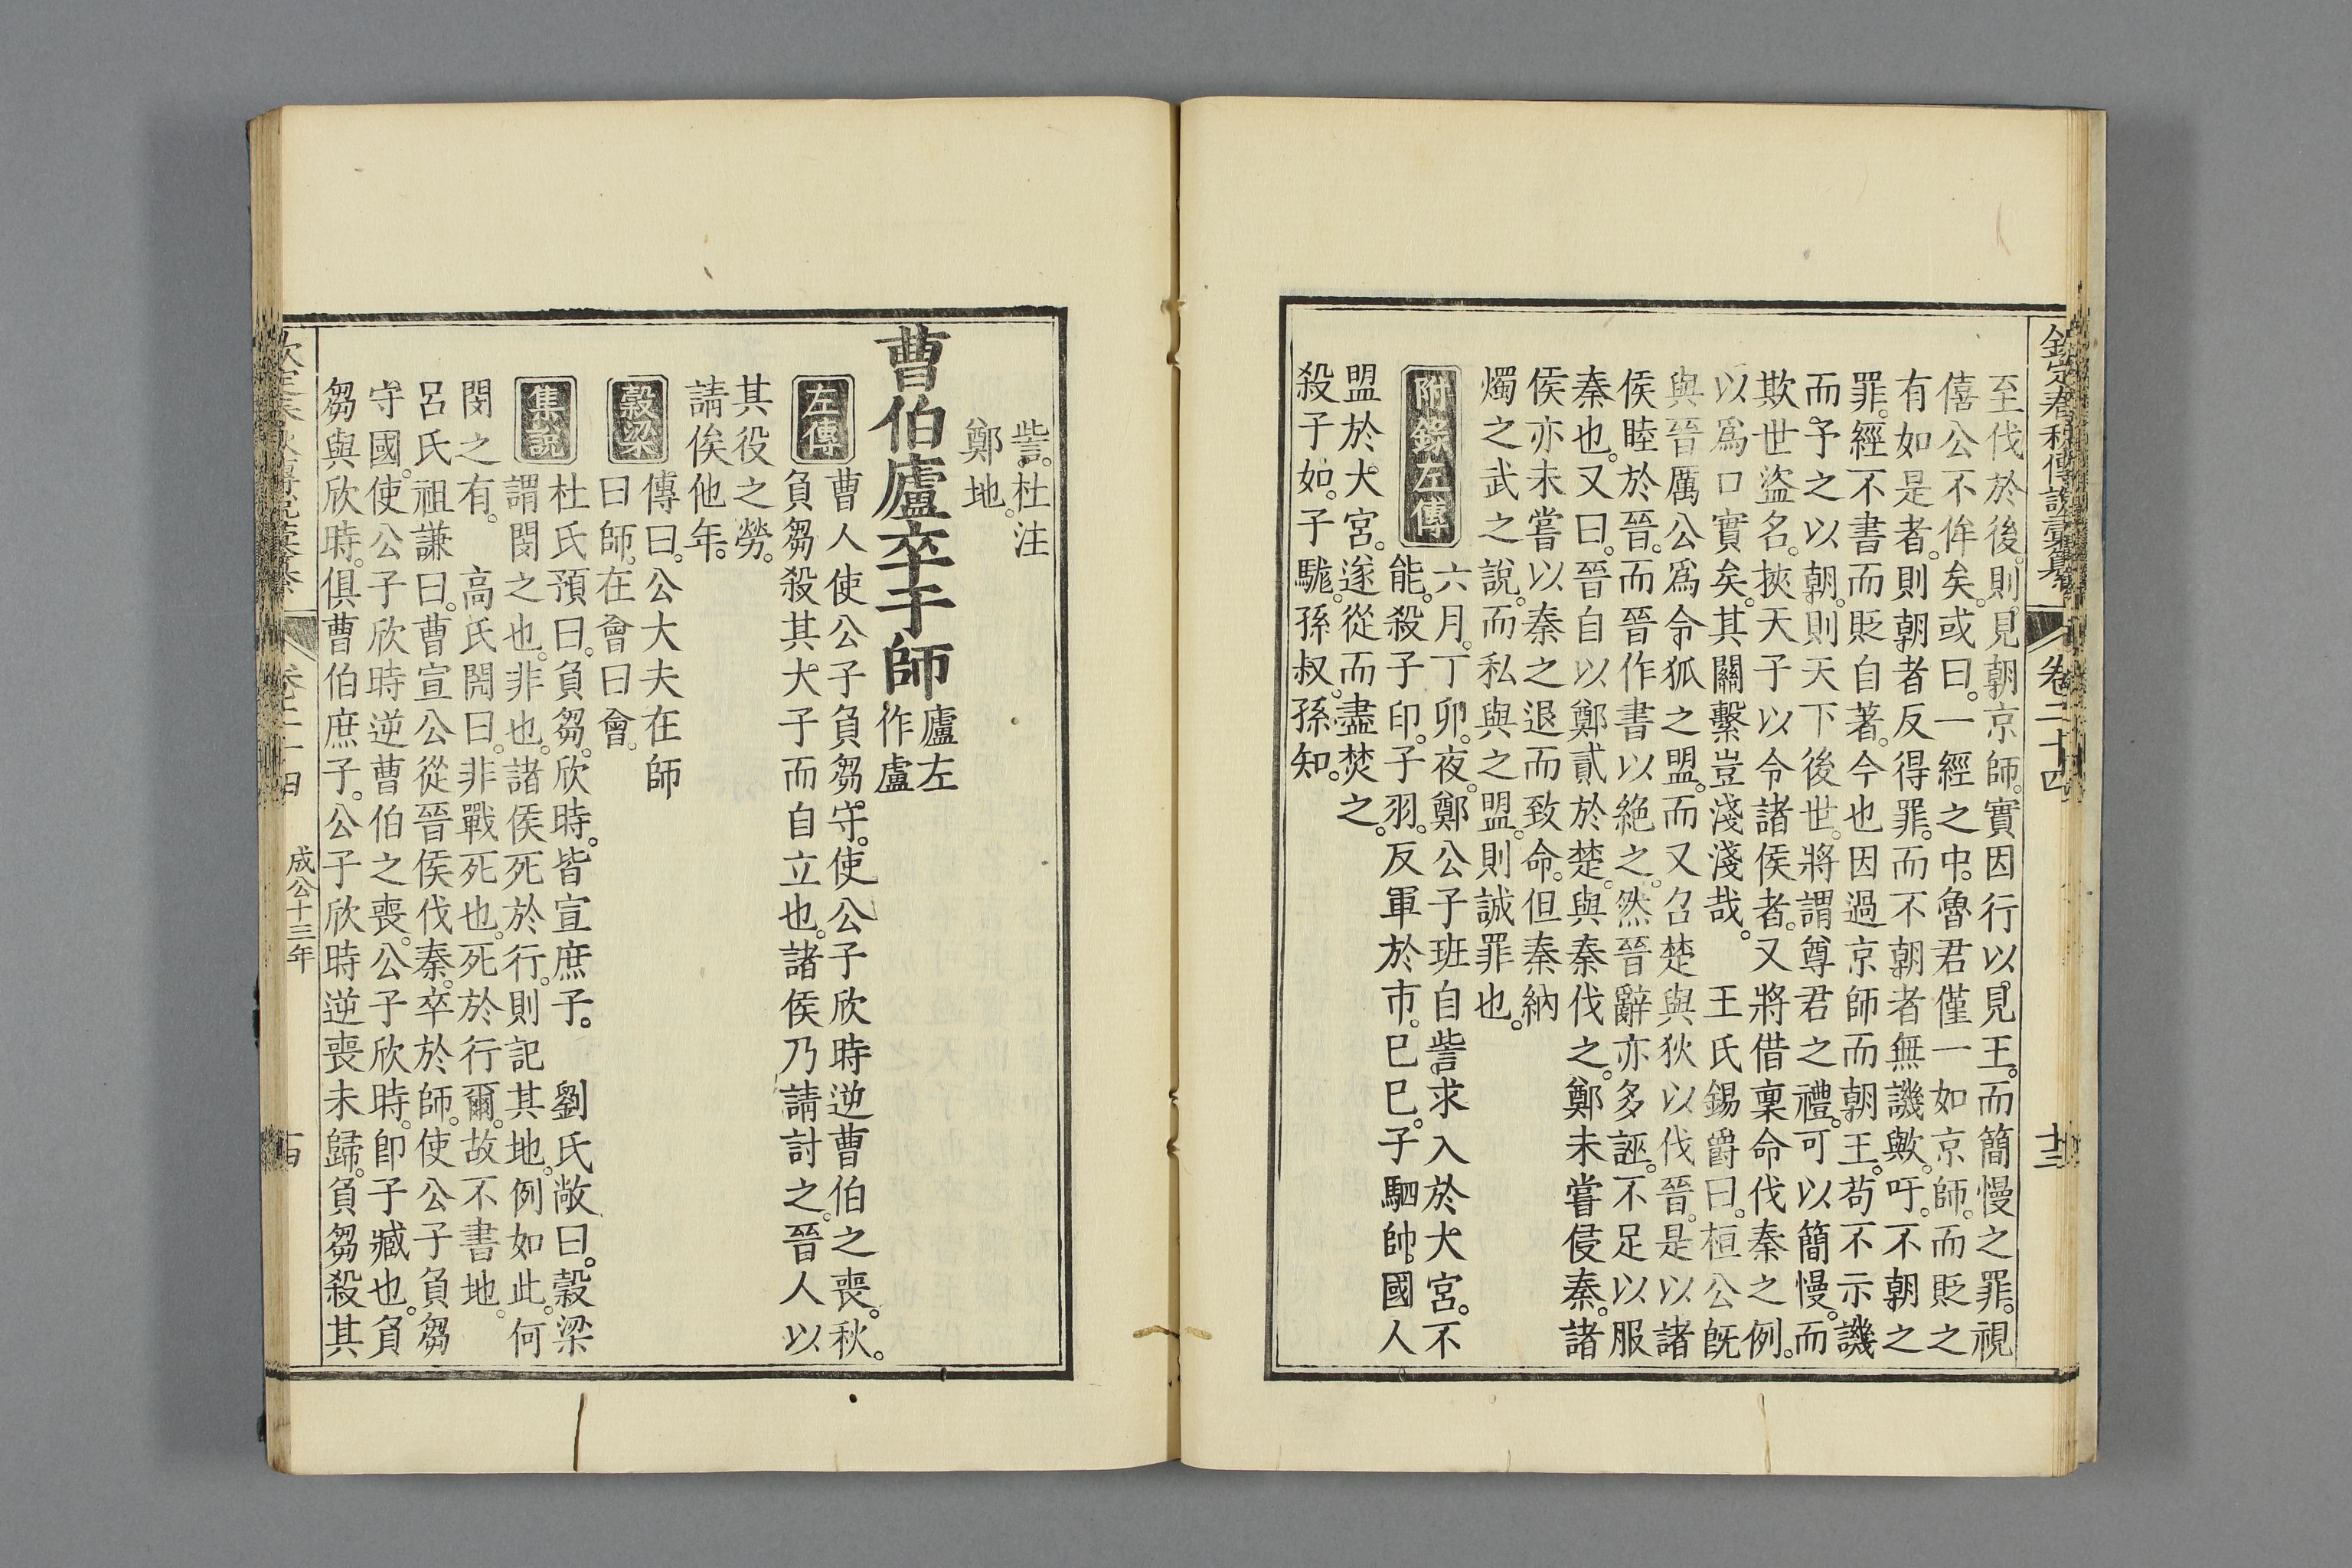 欽定春秋傳說彙纂 卷二十四 十三
至伐於後。則見朝京師。實因行以見王。而簡慢之罪。視
僖公不侔矣。或曰。一經之中。魯君僅一如京師。而貶之
有如是者。則朝者反得罪。而不朝者無譏歟。吁。不朝之
罪。經不書而貶自著。今也因過京師而朝王。苟不示譏
而予之以朝。則天下後世。將謂尊君之禮。可以簡慢。而
欺世盜名。挾天子以令諸侯者。又將借稟命伐秦之例。
以爲口實矣。其關繫豈淺淺哉。 王氏錫爵曰。桓公旣
與晉厲公爲令狐之盟。而又召楚與狄以伐晉。是以諸
侯睦於晉。而晉作書以絶之。然晉辭亦多誣。不足以服
秦也。又曰。晉自以鄭貳於楚。與秦伐之。鄭未嘗侵秦。諸
侯亦未嘗以秦之退而致命。但秦納
燭之武之說。而私與之盟。則誠罪也。
附錄左傳 六月。丁卯。夜。鄭公子班自訾求入於大宮。不
能。殺子印。子羽。反軍於市。巳巳。子駟帥。國人
盟於大宮。遂從而盡焚之。
殺子如。子駹。孫叔。孫知。
訾。杜注
鄭地。
曹伯廬卒于師 廬左
作盧
左傳 曹人使公子負芻守。使公子欣時逆曹伯之喪。秋。
負芻殺其大子而自立也。諸侯乃請討之。晉人以
其役之勞。
請俟他年。
穀梁 傳曰。公大夫在師
曰師。在會曰會。
集說 杜氏預曰。負芻。欣時。皆宣庶子。 劉氏敞曰。穀梁
謂閔之也。非也。諸侯死於行。則記其地。例如此。何
閔之有。 高氏閌曰。非戰死也。死於行爾。故不書地。
呂氏祖謙曰。曹宣公從晉侯伐秦。卒於師。使公子負芻
守國。使公子欣時逆曹伯之喪。公子欣時。卽子臧也。負
芻與欣時。俱曹伯庶子。公子欣時逆喪未歸。負芻殺其
成公十三年